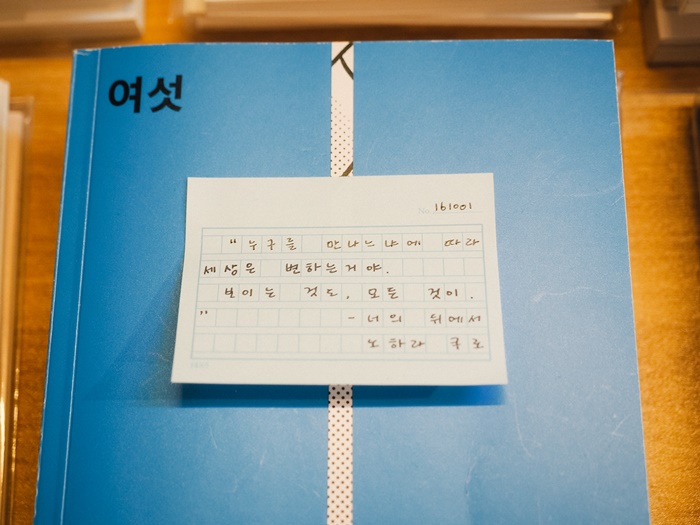 여섯
No. 161001
“누구를 만나느냐에 따라
세상은 변하는거야.
보이는 것도, 모든 것이.
” - 너의 뒤에서
노하라 글로